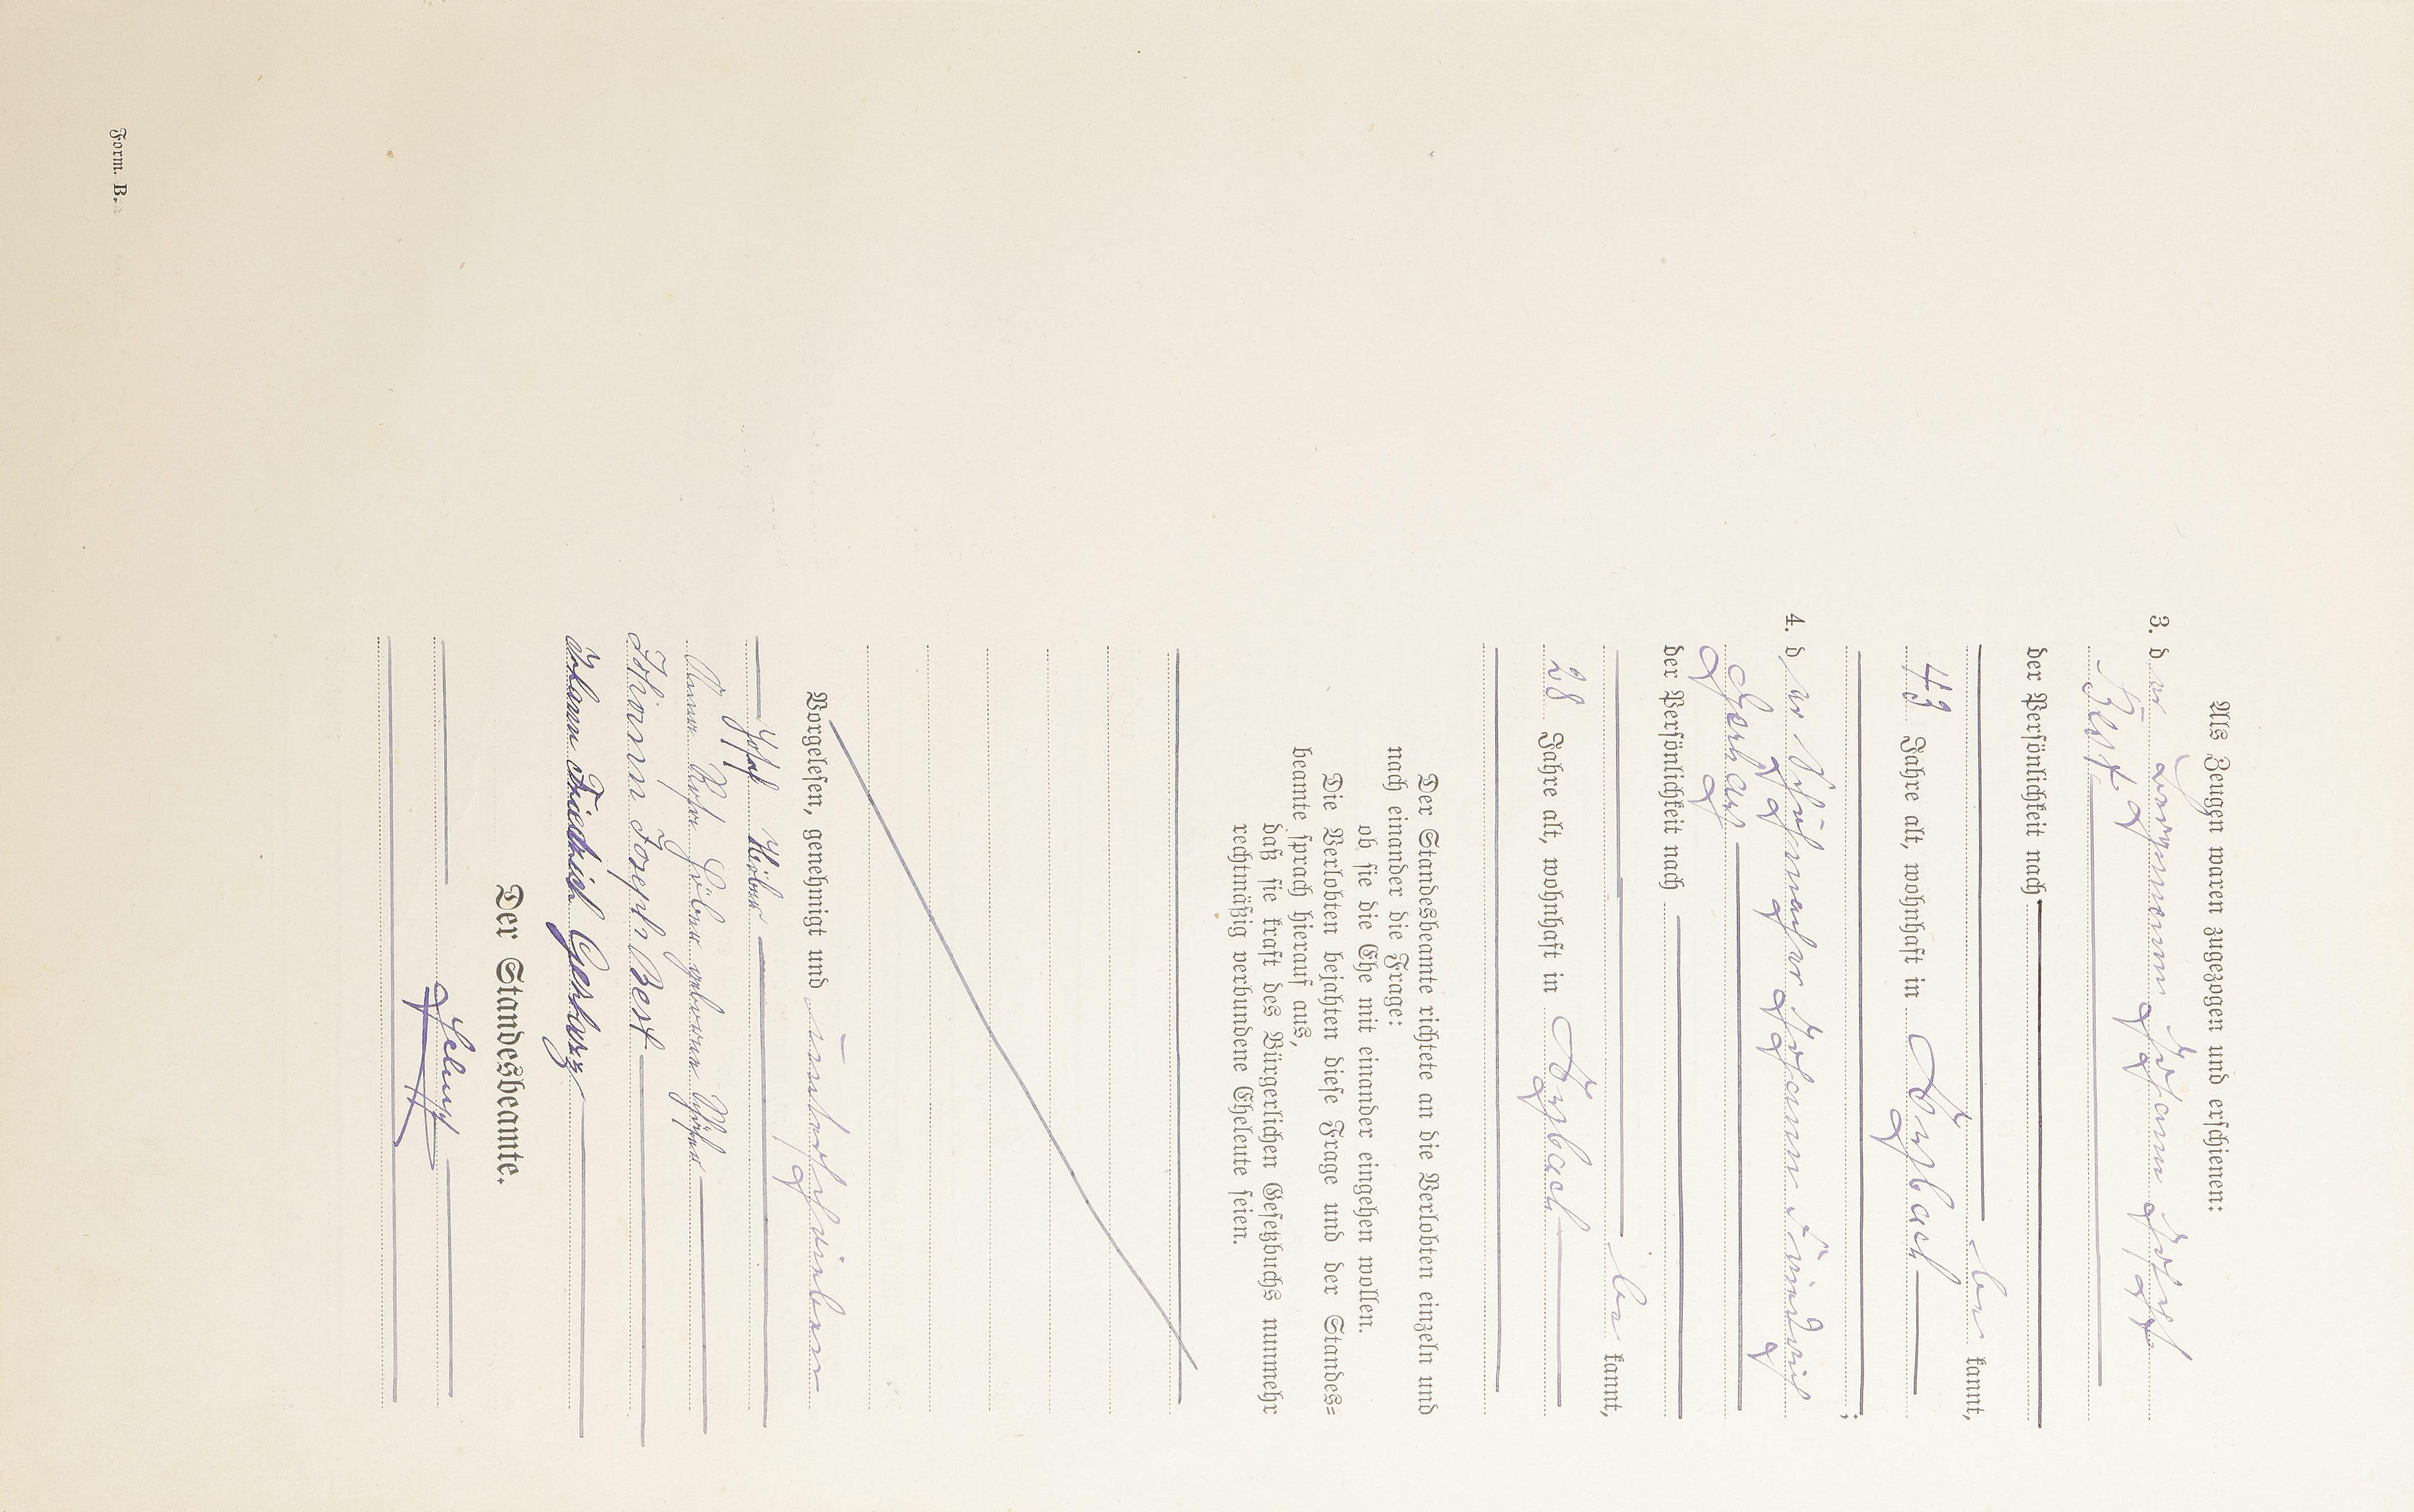 Als Zeugen waren zugezogen und erschienen:
3. der Bergmann Johann Josef
Best
der Persönlichkeit nach
be kannt,
43 Jahre alt, wohnhaft in
;
4. der Schuhmacher Johann Friedrich
Gerharz
der Persönlichkeit nach
be kannt,
28 Jahre alt, wohnhaft in
Der Standesbeamte richtete an die Verlobten einzeln und
nach einander die Frage:
ob sie die Ehe mit einander eingehen wollen.
Die Verlobten bejahten diese Frage und der Standes=
beamte sprach hierauf aus,
daß sie kraft des Bürgerlichen Gesetzbuchs nunmehr
rechtmäßig verbundene Eheleute seien.
Vorgelesen, genehmigt und unterschrieben
Josef
Anna geborene
Johann Joseph Best
Johann Friedrich Gerharz
Der Standesbeamte.
Form. B.